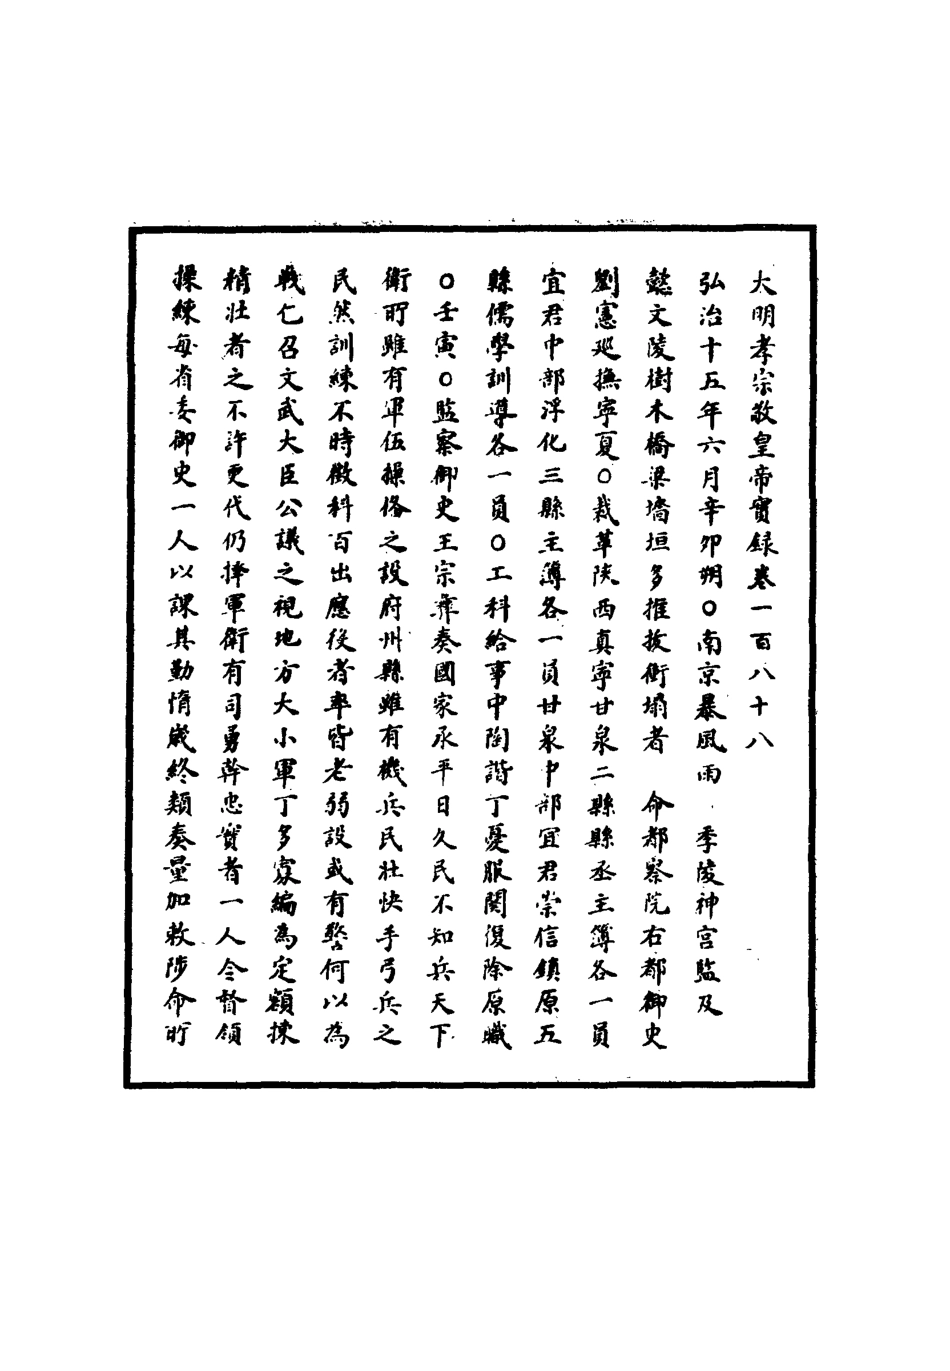 大明孝宗敬皇帝實録卷一百八十八
弘治十五年六月辛卯朔○南京暴風雨　孝陵神宮監及
懿文陵樹木橋梁墻垣多摧拔衝塌者　命都察院右都御史
劉憲廵撫寧夏○裁革陕西真寧甘泉二縣縣丞主簿各一員
宜君中部淳化三縣主簿各一員甘泉中部宜君崇信鎮原五
縣儒學訓導各一員○工科給事中陶諧丁憂服闋復除原職
○壬寅○監察御史王宗彝奏國家承平日久民不知兵天下
衛所雖有軍伍操俻之設府州縣雖有機兵民壯快手弓兵之
民然訓練不時徵科百出應役者率皆老弱設或有警何以為
戰乞召文武大臣公議之視地方大小軍丁多寡編為定額揀
精壯者之不許更代仍擇軍衛有司勇幹忠實者一人令督領
操練每省委御史一人以課其勤惰嵗終類奏量加敕陟命所